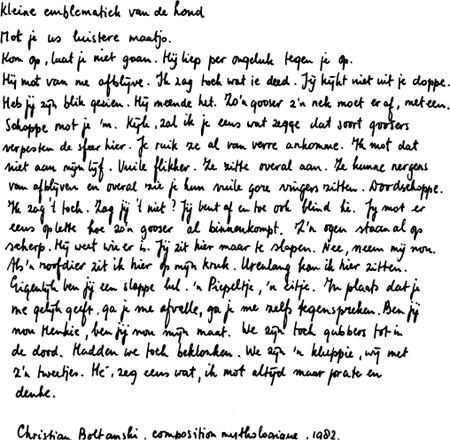 Kleine emblematiek van de hond
Mot je us luistere maatjo.
Kom op, laat je niet gaan. Hij liep per ongeluk tegen je op.
Hij mot van me afblijve. Ik zag toch wat ie deed. Jij kijkt niet uit je doppe.
Heb jij zijn blik gezien. Hij meende het. Zo'n gooser z'n nek moet er af, met een.
Schoppe mot je 'm. Kijk, zal ik je eens wat zegge dat soort goosers
verpesten de sfeer hier. Je ruik ze al van verre ankomme. Ik mot dat
niet aan mijn lijf. Vuile flikker. Ze zitte overal aan. Ze kunne nergens
van afblijven en overal zie je hun vuile gore vingers zitten. Doodschoppe.
Ik zag 't toch. Zag jij 't niet? Jij bent af en toe ook blind hè. Jy mot er
eens oplette hoe zo'n gooser al binnenkompt. Z'n ogen staan al op
scherp. Hij weet wie er is. Jij zit hier maar te slapen. Nee, neem mij nou.
Als 'n roofdier zit ik hier op mijn kruk. Urenlang kan ik hier zitten.
Eigenlijk ben jij een slappe lul. 'n Piepeltje, 'n eitje. In plaats dat je
me gelijk geeft, ga je me afvalle, ga je me zelfs tegenspreken. Ben jij
nou Henkie, ben jij nou mijn maat. We zijn toch gabbers tot in
de dood. Hadden we toch beklonken. We zijn 'n kluppie, wij met
z'n tweetjes. Hé, zeg eens wat, ik mot altijd maar prate en
denke.
Christian Boltanski, composition mythologique, 1982.